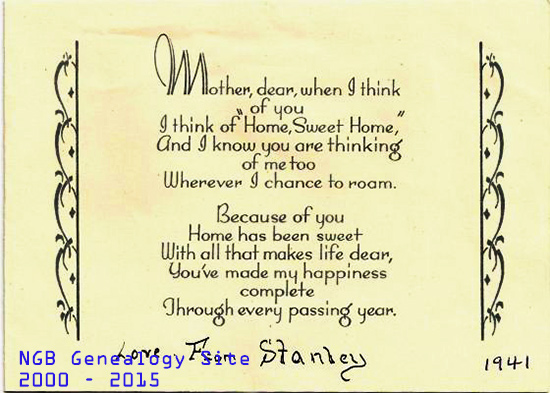 Mother, dear, when I think
of you
I think of "Home, Sweet Home,"
And I know you are thinking
of me too
Wherever I chance to roam.
Because of you
Home has been sweet
With all that makes life dear,
You've made my happiness
complete
Through every passing year.
Love From Stanley
1941
NGB Genealogy Site
2000 - 2015